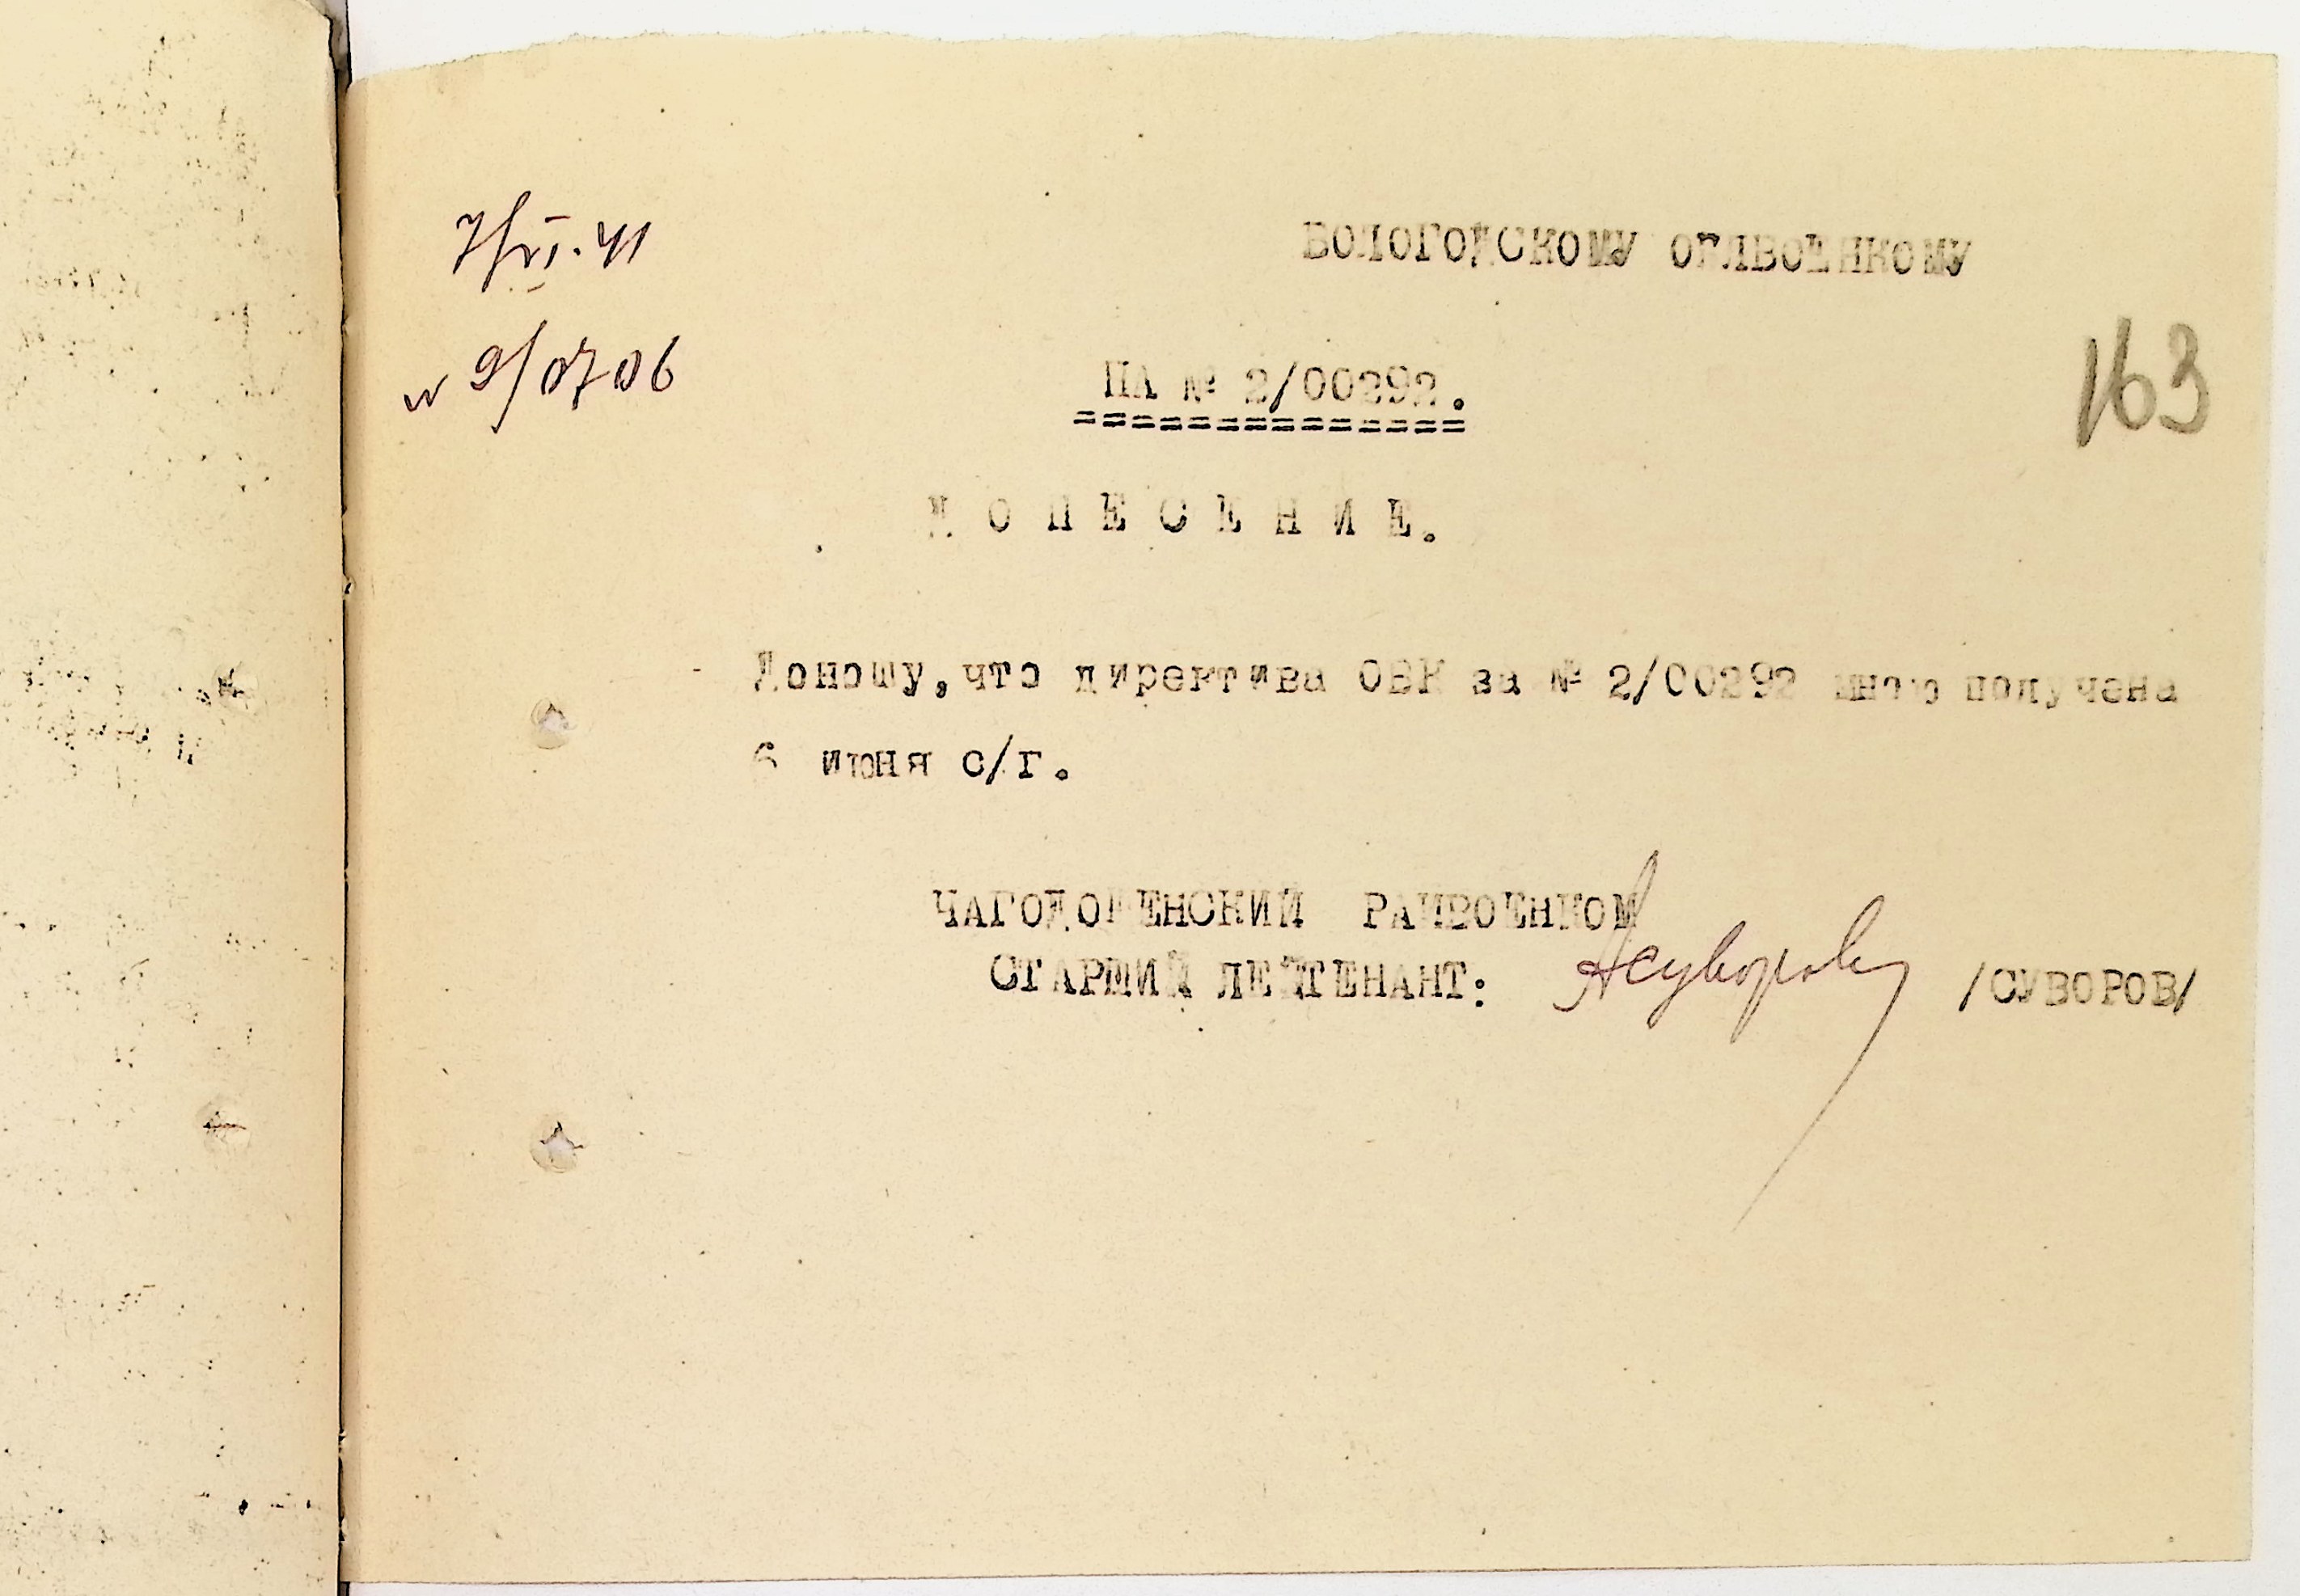 7/VI.41
ВОЛОГОДСКОМУ ОБЛВОЕНКОМУ
№ 9/0706
НА № 2/00292.
==============
163
Д О Н Е С Е Н И Е.
Доношу, что директива ОВК за № 2/00292 мною получена
6 июня с/г.
ЧАГОДОЩЕНСКИЙ РАЙВОЕНКОМ
СТАРШИЙ ЛЕЙТЕНАНТ: АСуворов /СУВОРОВ/